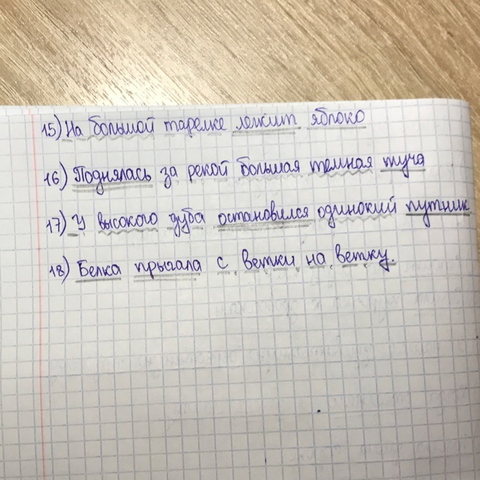 15) На большой тарелке лежит яблоко
16) Поднялась за рекой большая темная туча
17) У высокого дуба остановился одинокий путник
18) Белка прыгала с ветки на ветку.